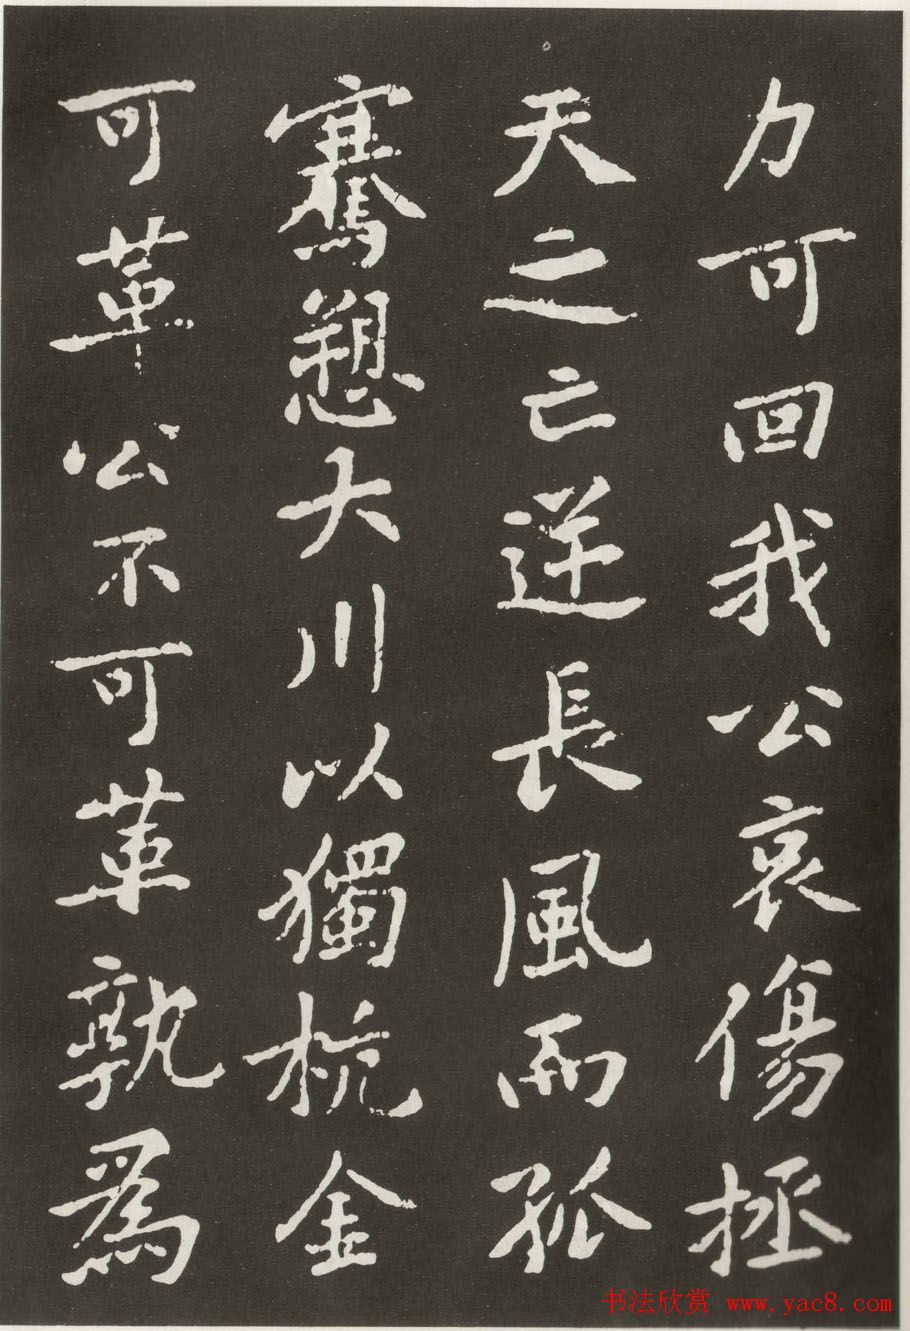 力可回我公哀傷拯
天之亡逆長風而孤
騫愬大川以獨杭金
可革公不可革孰為
书法欣赏 www.yac8.com